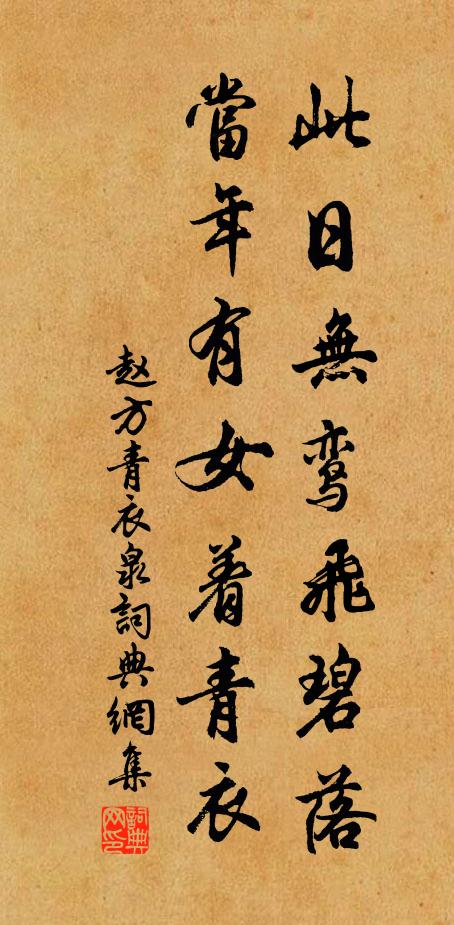 此日無鸾飛碧落
當年有女着青衣
赵方青衣泉詞典網集
詞典
网印